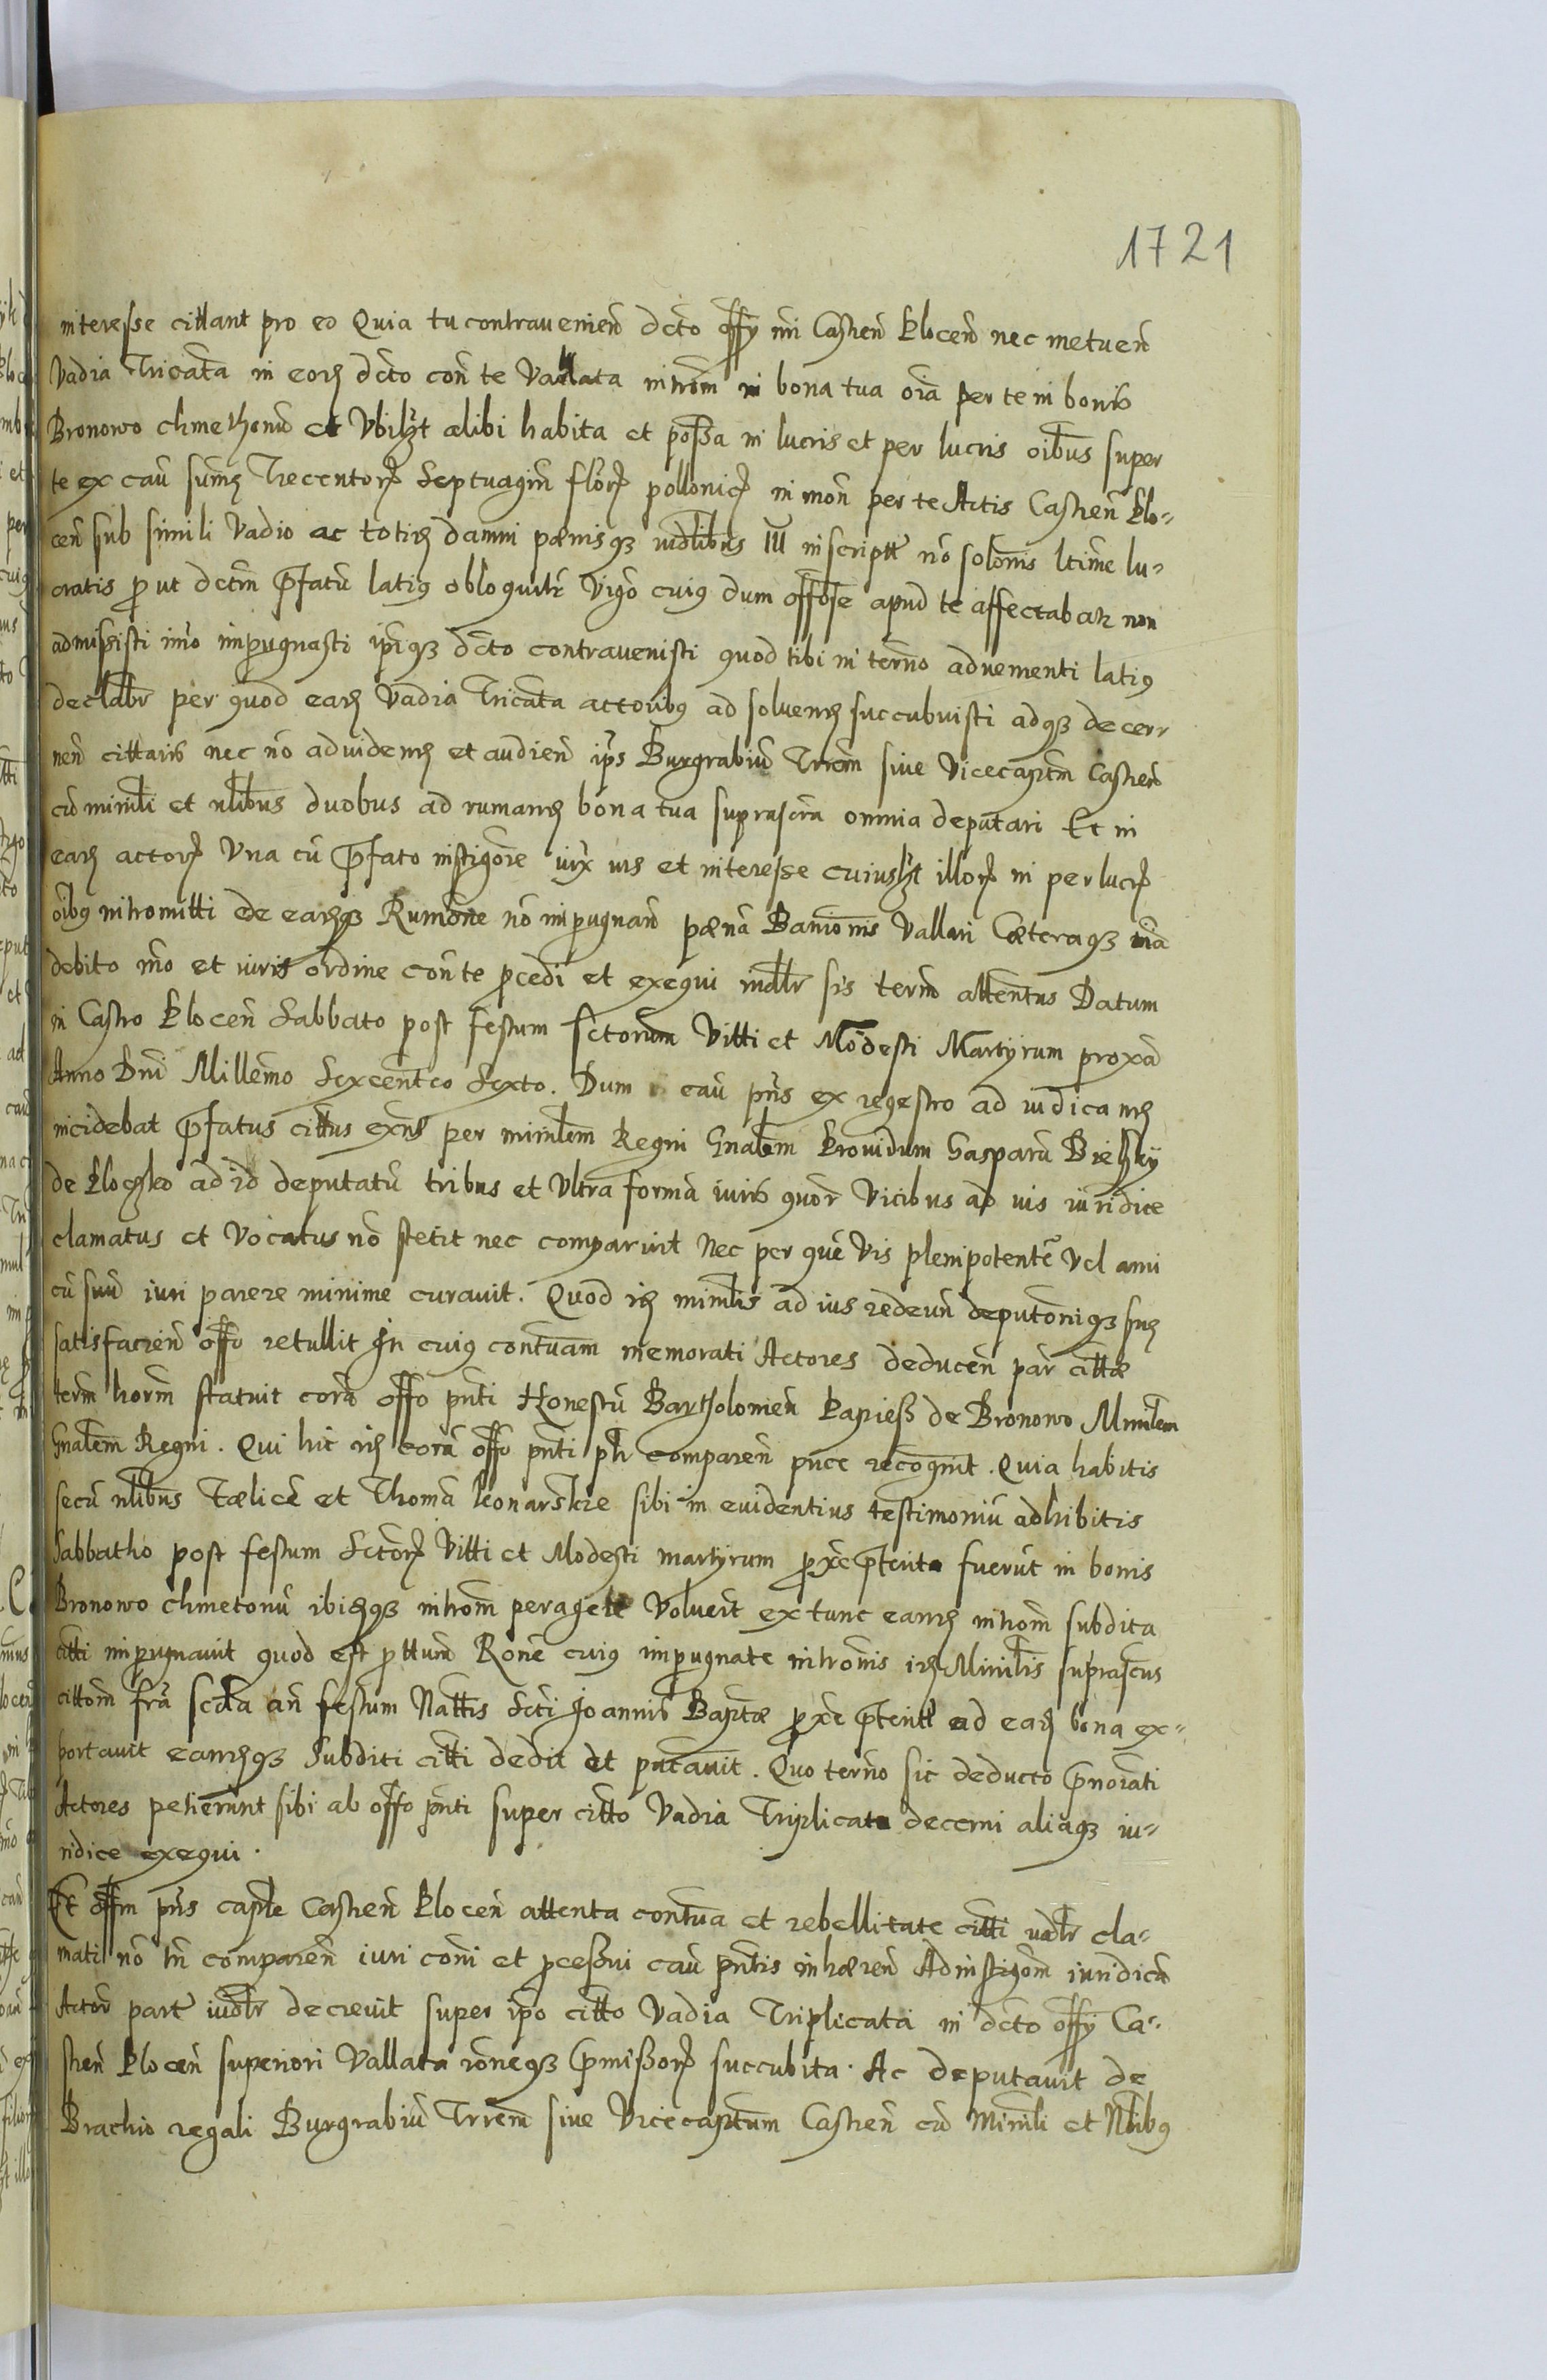 1721
interesse cittant pro eo Quia tu contravenien dcto offy mi Castren Plocen nec metuen
Vadia Tricata in eod dcto con te Vallata introm in bona tua oia per te in bonis
Bronowo chmethonu et Vbilzt alibi habita et possa in lucris et per lucris oibus super
te ex cau sumę Trecentor Septuagin flor pollonic in mon per te Actis Castren Plo-
cen sub simili Vadio ac totiq damni pænisq iudlibus III inscriptt no solonis ltime lu-
cratis put dctm pfatu latiq obloquitr Vigo cuiq dum offose apud te affectabatr non
admissisti imo impugnasti ipiq dcto contravenisti quod tibi in terno advenienti latiq
declabr per quod eaq Vadia Tricata actoribq ad solvenę succubuisti adq decer-
nen cittaris nec no ad videnę et audien ips Burgrabiu Trrem sive Vicecaptm Castren
cu minrli et nlibus duobus ad rumanę bona tua suprascra omnia deputari Et in
eaq actor Vna cu pfato instigore iux ius et interesse cuiuslzt illor in perlucr
oibq intromitti de eaqq Rumone no impugnan pæna Banionis Vallari Cæteraq oia
debito mo et iuris ordine con te pcedi et exequi iudlr sis termo attentus Datum
in Castro Plocen Sabbato post festum sctorum Vitti et Modesti Martyrum proxa
Anno Dni Millemo Sexcenteo Sexto. Dum cau pns ex regestro ad iudicanę
incidebat pfatus cittus exns per minrlem Regni Gnalem Providum Gasparu Bielsky
de Plocsko ad id deputatu tribus et Vltra forma iuris quor Vicibus ad ius iuridice
clamatus et Vocatus no stetit nec comparuit Nec per que Vis plenipotente Vel ami
cu suu iuri parere minime curavit. Quod iq minrlis ad ius redeun deputoniq suę
satisfacien offo retullit In cuiq contvam memorati Actores deducen par cittæ
term horm statuit cora offo pnti Honestu Bartholomeu Papieß de Bronowo Minrlem
Gnalem Regni. Qui hic iq cora offo pnti plr comparen pnce recognit. Quia habitis
secu nlibus Fælice et Thoma Konarskie sibi in evidentius testimoniu adhibitis
Sabbatho post festum Sctor Vitti et Modesti martyrum pxe pterita fuerut in bonis
Bronowo chmetonu ibiqq introm peragere Volueit ex tunc eamę introm subdita
citti impugnavit quod est pttum Rone cuiq impugnate intromis iq Minrlis suprascus
cittom fra scda an festum Nattis Scti Joannis Baptæ pxe pterit ad eaq bona ex-
portavit eamęq Subditi citti dedit et pntavit. Quo terno sic deducto pnoiati
Actores petierunt sibi ab offo pnti super citto Vadia Triplicata decerni aliaq iu-
ridice exequi.
Et offm pns capte Castren Plocen attenta contva et rebellitate citti iudlr cla-
mati no tn comparen iuri coni et pcessui cau pntis inhæren Ad instigom iuridica
Actor part iudlr decrevit super ipo citto Vadia Triplicata in dcto offy Ca-
stren Plocen superiori Vallata roneq pmissor succubita. Ac deputavit de
Brachio regali Burgrabiu Trrem sive Vicecaptum Castren cu Minrli et Nlibq